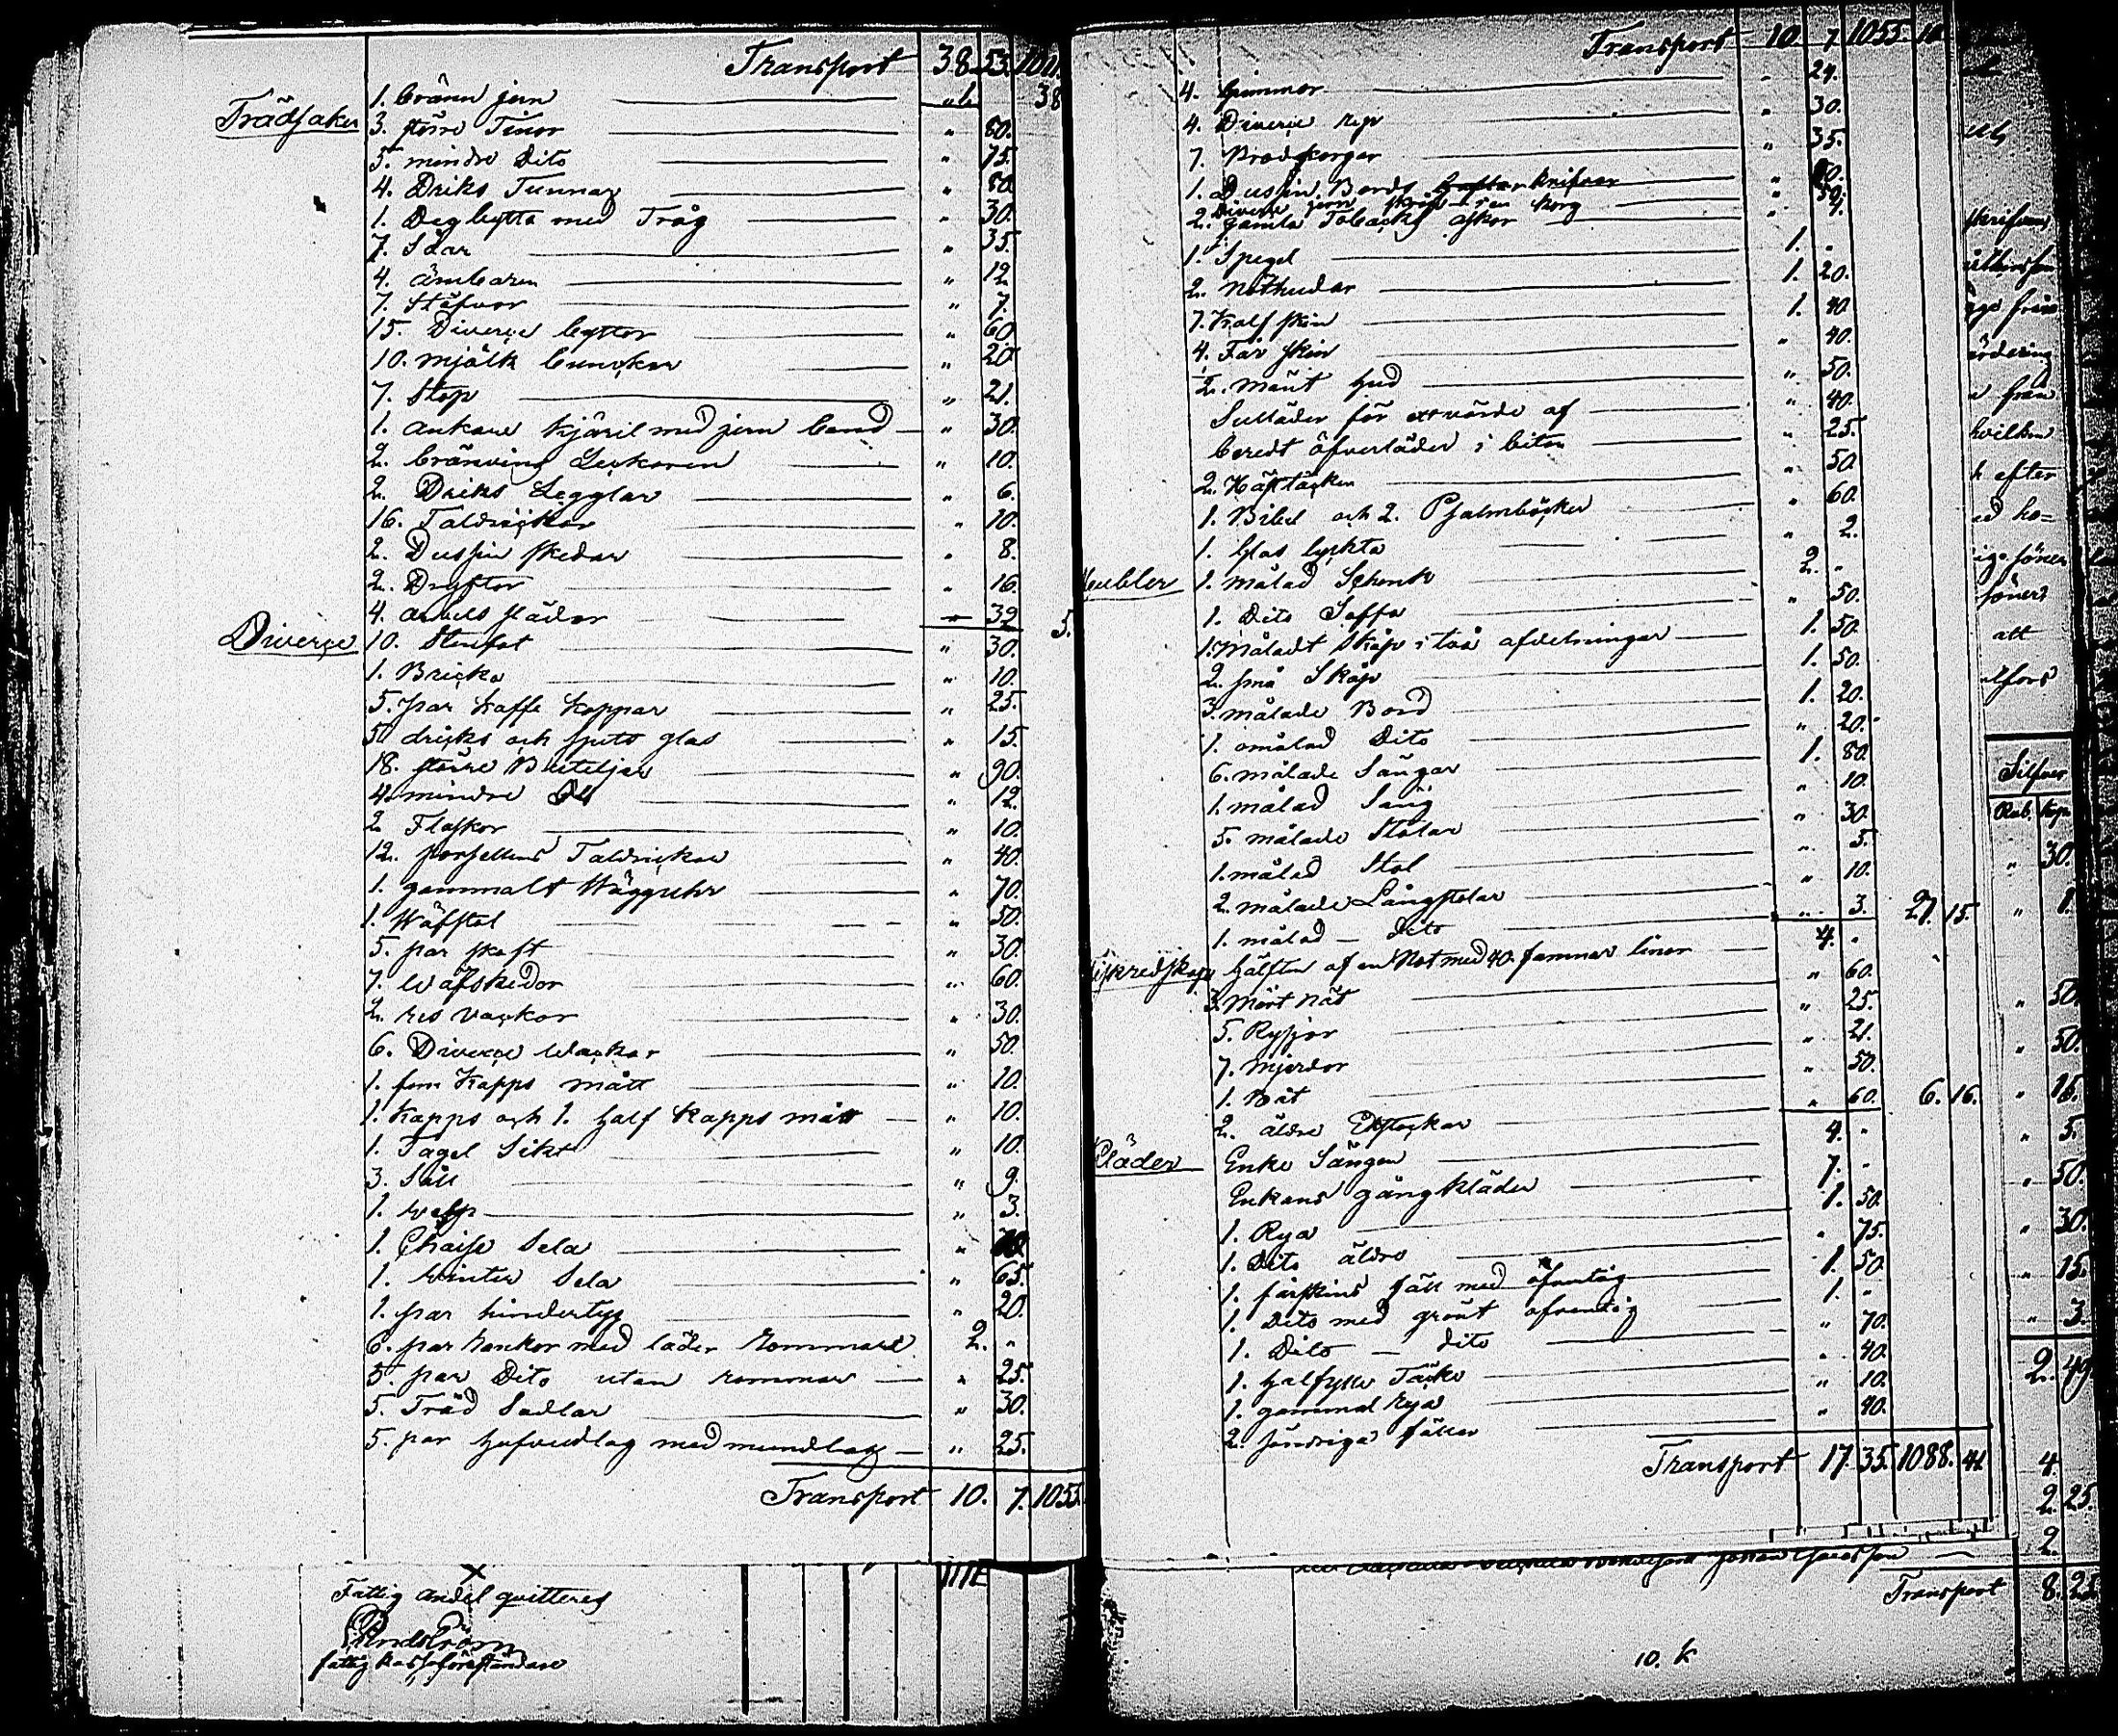 Transport 38. 53. 1011.
1. bränn jern " 6. 38
Trädsaker 3. större Tinor " 60.
5. mindre Dito " 75.
4. Driks Tunnor " 80
1. Degbytta med Tråg " 30.
7. Såar " 35.
4. ämbaren " 12
7. Stäfvor " 7.
15. Diverse byttor " 60.
10. mjölk bunckar " 20
7. Stop " 21.
1. ankare kjäril med jern band " 30.
2. bränvins Leckaren " 10.
2. Driks Legglar " 6.
16. Taldrickar " 10.
2. Dussin skedar " 8.
2. Dryftor " 16.
4. arbets slädar " 32 5.
Diverse 10. Stenfat " 30.
1. Bricka " 10.
5. par kaffe koppar " 25.
5 dricks och spets glas " 15.
18. större Buteljer " 90.
4. mindre " 12.
2. Flaskor " 10.
12. porsellins Taldrickar " 40.
1. gammalt Wägguhr " 70.
1. Wäfstol " 50.
5. par skaft " 30.
7. Wäfskedar " 60.
2. res vackor " 30.
6. Diverse Wackor " 50.
1. fem Kapps mått " 10.
1. Kapps och 1. half Kapps mått " 10.
1. Tagel Sikt " 10.
3. Såll " 9.
1. " 3.
1. Chaise Sela "
1. Winter Sela " 65.
1. par hindertyg " 20.
6. par rankor med läder remmar 2. "
5. par Dito utan remmar " 25.
5. Träd Sadlar " 30.
5. par hufvudlag med mundlag " 25.
Transport 10. 7. 1055.
Fattig andel quitteras
fattig kasseföreståndare
Transport 10. 7. 1055. 10
4. Grimmor " 24.
4. Diverse rep " 30.
7. Brödkorgar " 35.
1. Dussin Bords knifvar " 60.
Diverse jern skrap i en korg " 50.
2. gamla Tobacks askor " 4.
1. Spegel 1. "
2. Nöthudar 1. 20.
7. Kalfskin 1. 40.
4. Får skin " 40.
1/2. Hud " 50.
Sulläder för värde af " 40.
beredt öfverläder i bitar " 25.
2. Hästtäcken " 50.
1. Bibel och 2. Psalmböcker " 60.
1. Glas lyckta " 2.
Meubler 1. målad Schenk 2. "
1. Dito Soffa " 50.
1. måladt Skåp i två afdelningar 1. 50.
2. små Skåp 1. 50.
3. målade Bord 1. 20.
1. omålad Dito " 20.
6. målade Sängar 1. 80.
1. målad Säng " 10.
5. målade Stolar " 30.
1. målad Stol " 5.
2. målade Långstolar " 10.
1. målad Dito " 3. 27. 15.
Fiskredskap hälften af en Not med 40. famnar linor 4. "
3. Mört nät " 60.
5. Rysjor " 25.
7. Mjerdor " 21.
1. Båt " 50.
2. äldre Ekstockar " 60. 6. 16.
Kläder Enke Sängen 4. "
Enkans gångkläder 7. "
1. Rya 1. 50.
1. Dito äldre " 75.
1. fårskins fäll med öfventåg 1. 50.
1. Dito med grönt öfventåg 1. "
1. Dito — dito " 70.
1. halfylle Täcke " 40.
1. gammal Rya " 10.
2. söndriga fällar " 40.
Transport 17. 35. 1088. 41
Transport 8. 25
10. k
efter
från
att
hvilken
Silfver
Rub. Kop
" 30.
" 1.
" 50.
" 50.
" 15.
" 5.
" 50.
" 30.
" 15.
" 3.
2. 49.
4.
2. 25.
2.